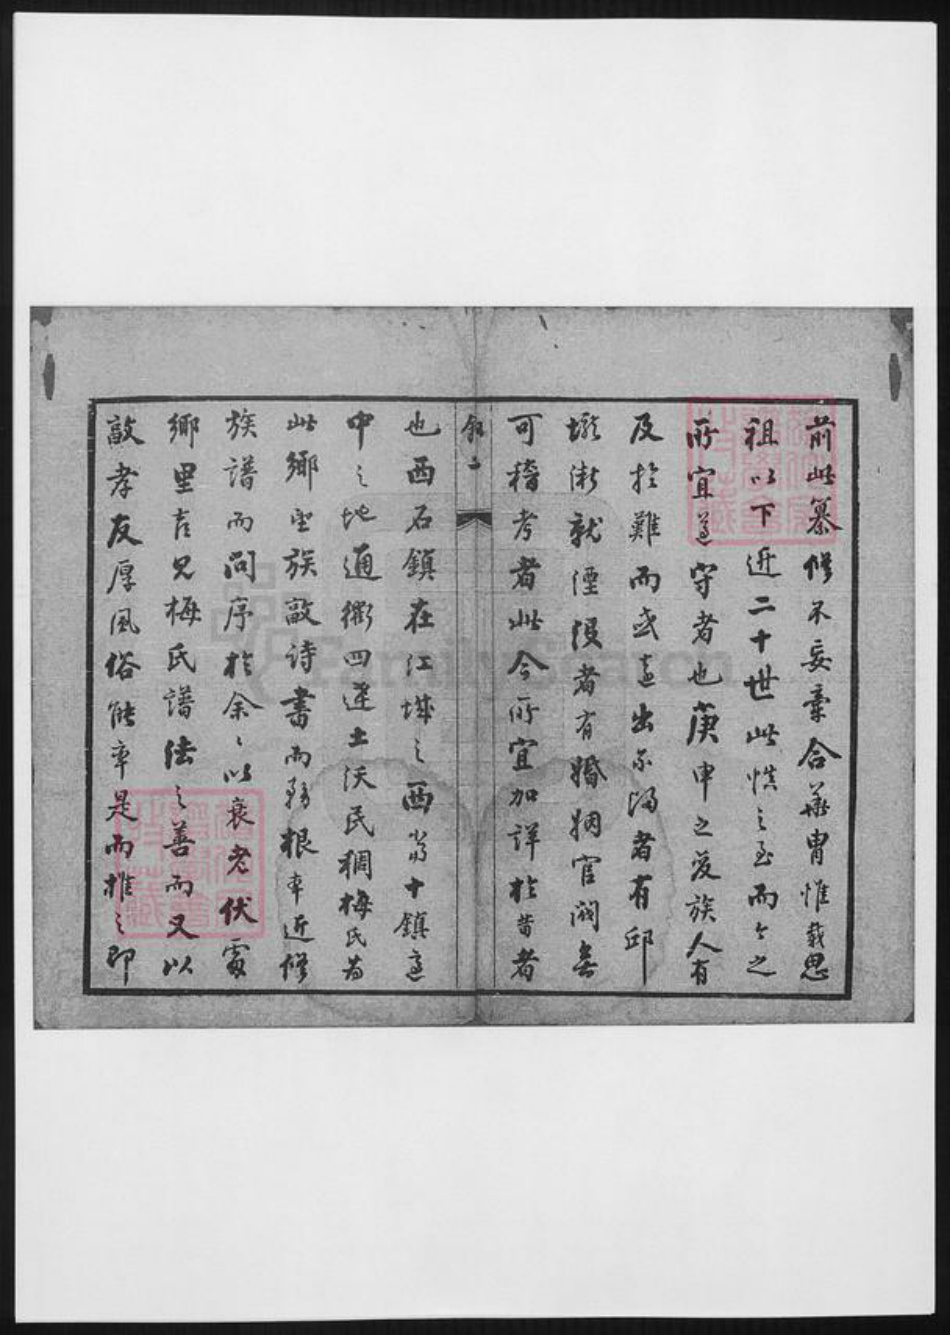 前此纂修不妄牽合華冑惟載思
祖以下近二十世此慎之至而今之
所宜遵守者也庚申之變族人有
及於難而或遠出不歸者有邱
壠漸就湮沒者有婚姻官閥無
可稽考者此今所宜加詳於昔者
叙 二
也西石鎮在江城之西當十鎮適
中之地通衢四達土沃民稠梅氏為
此鄉望族敦詩書而務根本近修
族譜而問序於余余以衰老伏處
鄉里喜見梅氏譜法之善而又以
敦孝友厚風俗能率是而推之即
FamilySearch